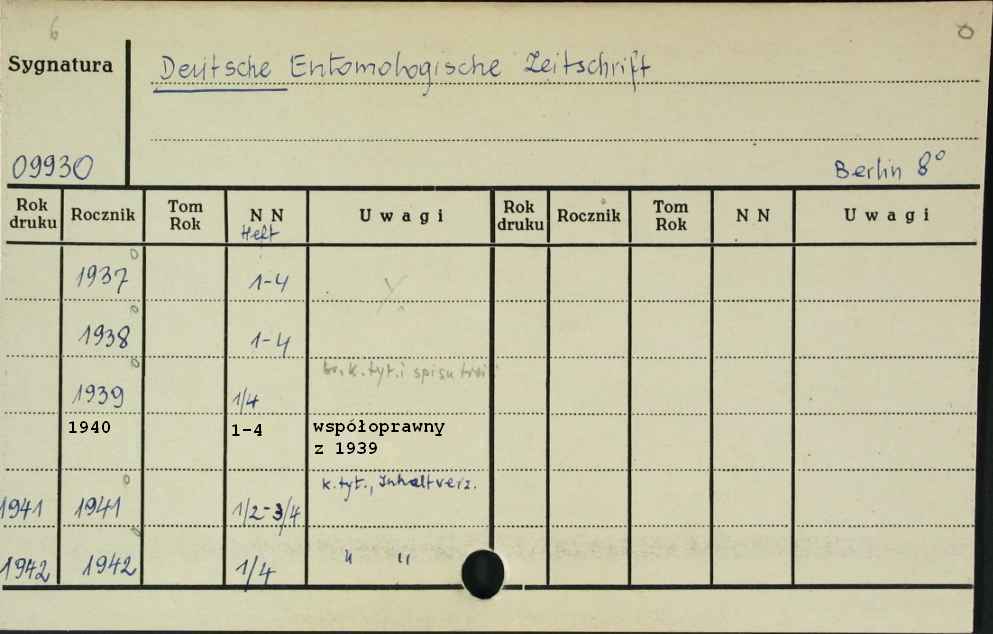 6
Sygnatura
Deutsche Entomologische Zeitschrift
09930
Berlin 8°
Rok druku Rocznik Tom Rok N N Heft Uwagi Rok druku Rocznik Tom Rok N N Uwagi
1937 1-4
1938 1-4
br. k. tyt. i spisu treści
1939 1/4
1940 1-4 współoprawny
z 1939
k. tyt., Inhaltverz.
1941 1941 1/2-3/4
1942 1942 1/4 " "